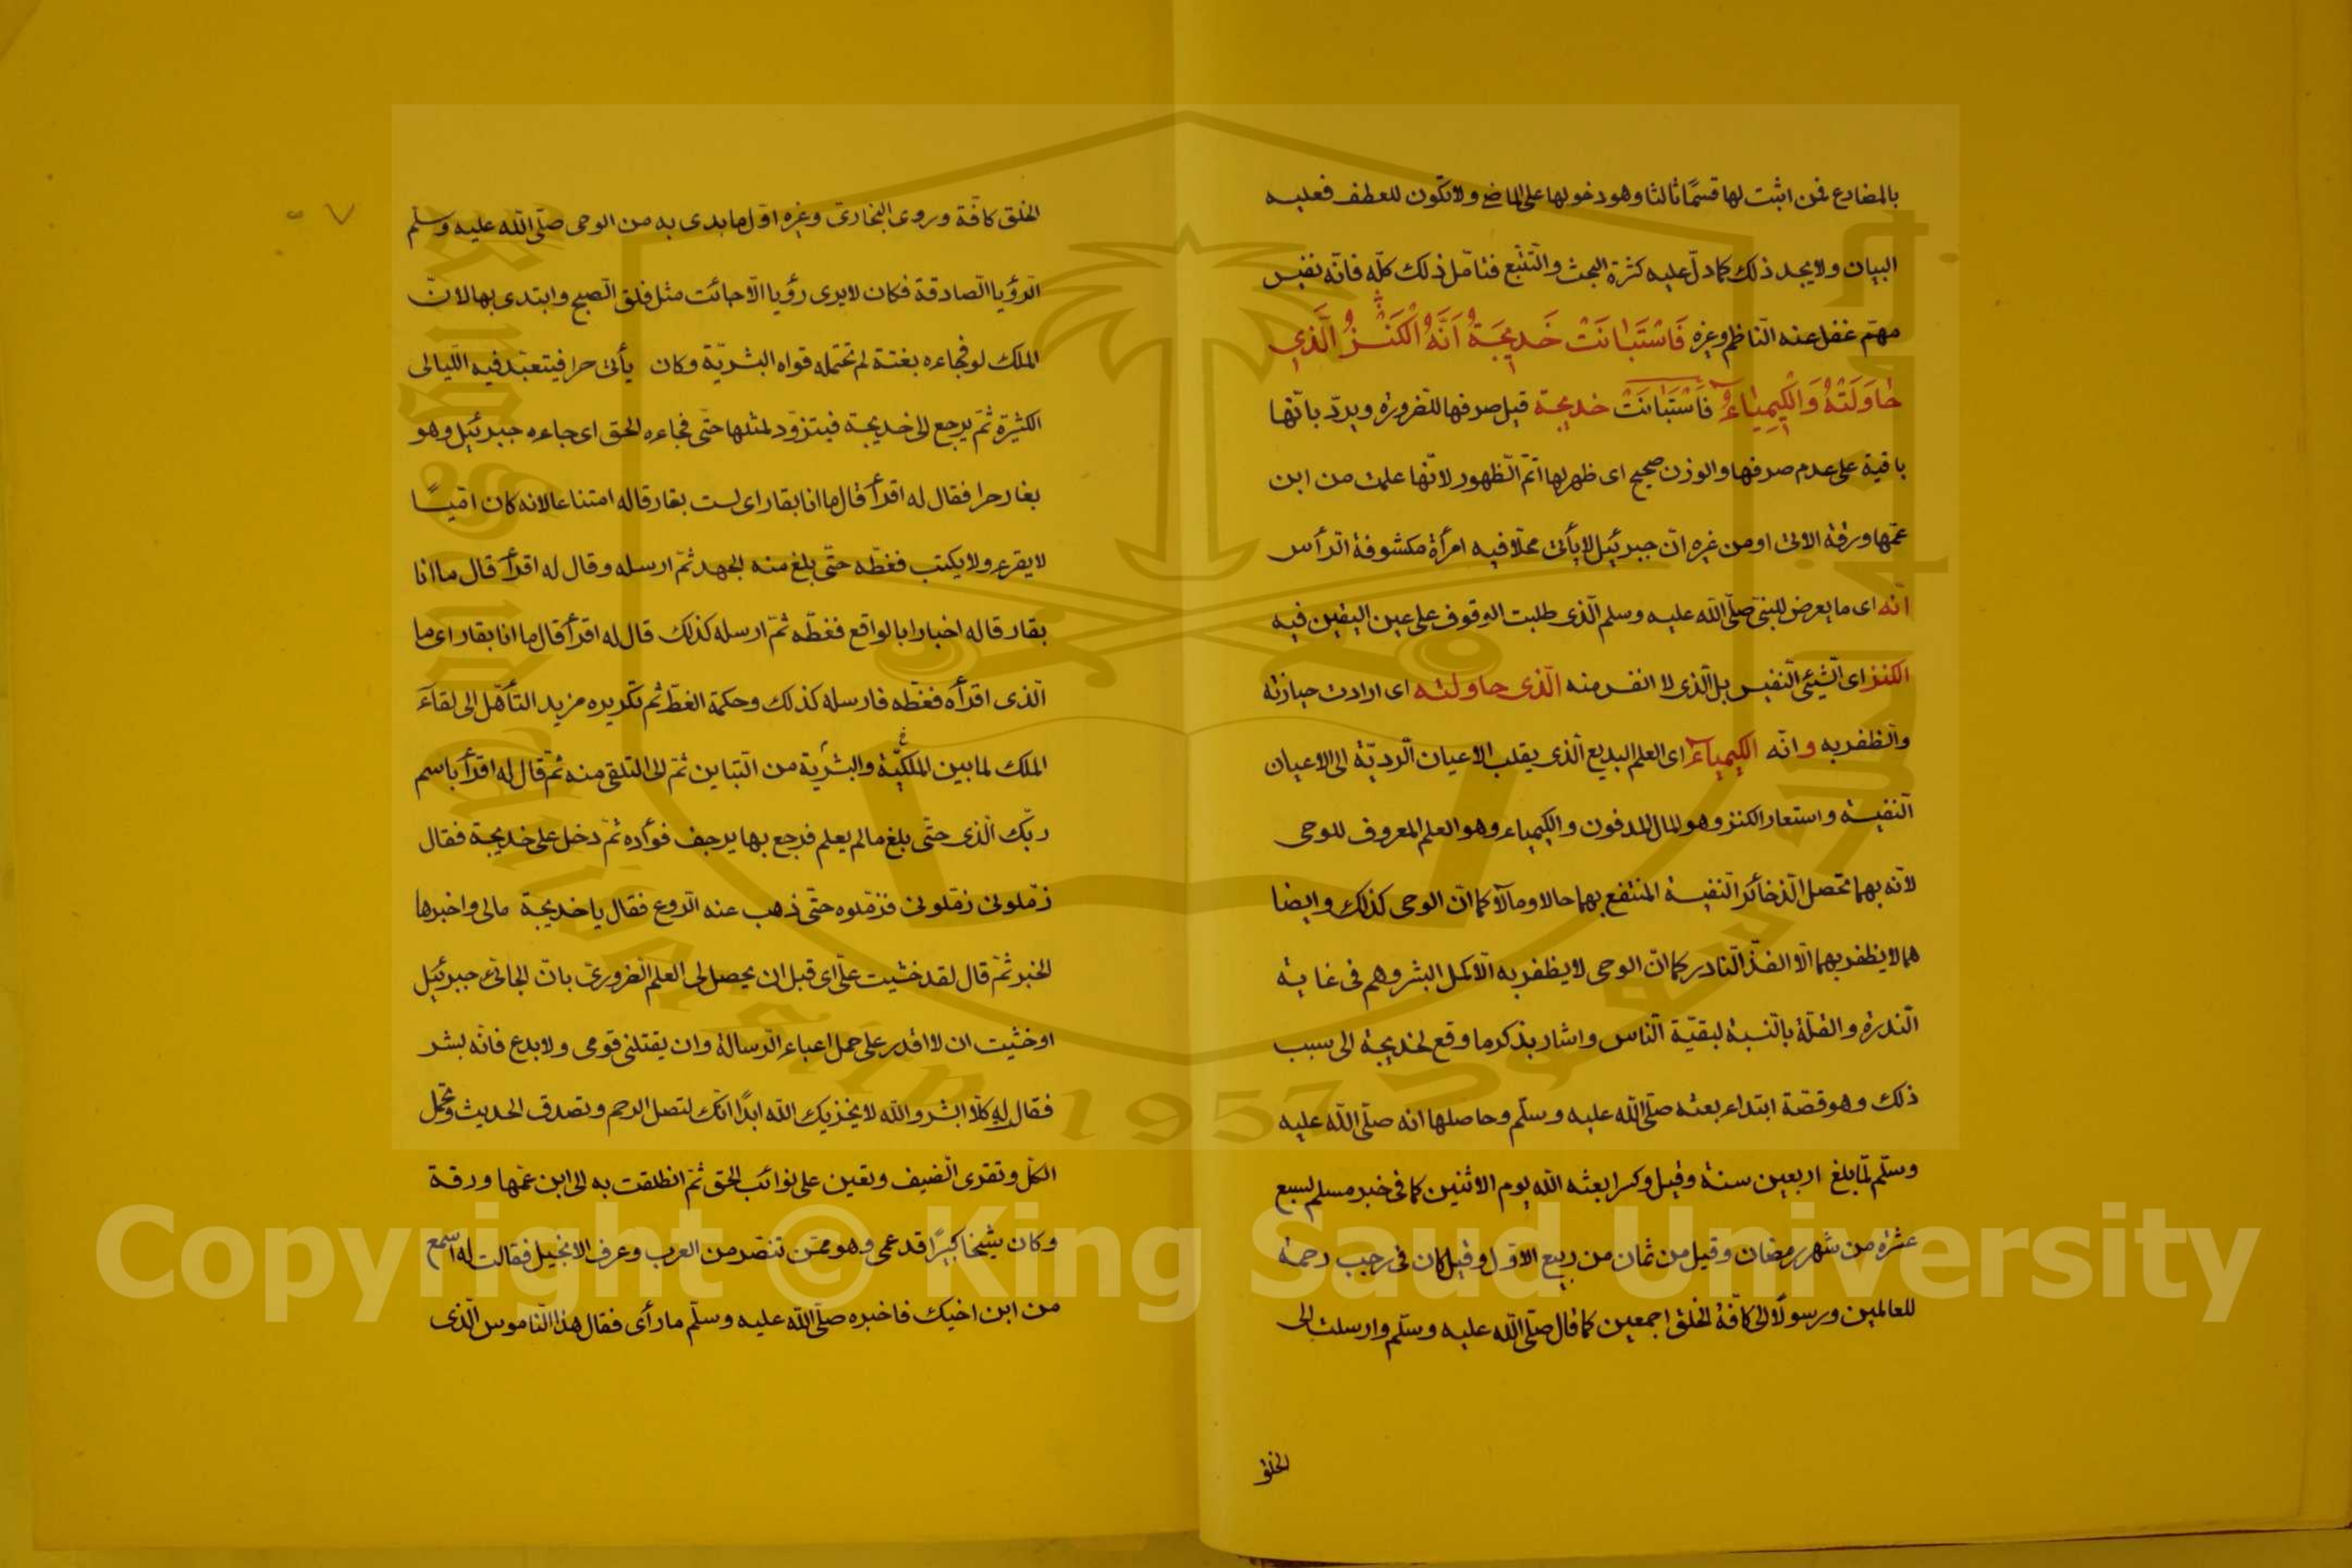 بالمضارع فمن اثبت لها قسمًا ثالثا وهو دخولها على الماضى ولا تكون للعطف فعليه
البيان ولا يجد ذلك كما دلّ عليه كثرة البحث والتّتبّع فتامّل ذلك كلّه فانّه نفيس
مهمّ غفل عنه النّاظم وغيره فَاسْتَبَانَتْ خَدِيجَةٌ اَنَّهُ الْكَنْـزُ الَّذِي
حَاوَلَتْهُ وَالْكِيمِيَاءُ فَاسْتَبَانَتْ خديجة قيل صرفها للضرورة ويردّ بانّها
باقية على عدم صرفها والوزن صحيح اى ظهر لها اتمّ الظهور لانّها علمت من ابن
عمّها ورقة الاتى او من غيره انّ جبرئيل لا يأتى محلّا فيه امرأة مكشوفة الرأس
انّه اى ما يعرض للنبىّ صلّى الله عليه وسلم الّذى طلبت الوقوف على عين اليقين فيه
الكنز اى الشّيئ النّفيس بل الّذى لا انفس منه الّذى حاولته اى ارادت حيازته
والظفر به وانّه الكيمياءُ اى العلم البديع الّذى يقلب الاعيان الرديّة الى الاعيان
النّفيسة واستعار الكنز وهو المال المدفون والكيمياء وهو العلم المعروف للوحى
لانّه بهما تحصل الذخائر النّفيسة المنتفع بهما حالا ومآلا كما انّ الوحى كذلك وايضا
هما لا يظفر بهما الّا الفذّ النّادر كما انّ الوحى لا يظفر به الّا كمل البشر وهم فى غاية
النّدرة والقلّة بالنّسبة لبقيّة النّاس واشار بذكر ما وقع لخديجة الى سبب
ذلك وهو قصّة ابتداء بعثه صلّى الله عليه وسلّم وحاصلها انه صلّى الله عليه
وسلّم لمّا بلغ اربعين سنة وقيل وكسرا بعثه الله يوم الاثنين كما فى خبر مسلم لسبع
عشرة من شهر رمضان وقيل من ثمان من ربيع الاوّل وقيل كان فى رجب رحمة
للعالمين ورسولًا الى كافّة الخلق اجمعين كما قال صلّى الله عليه وسلّم وارسلت الى
الخلق
الخلق كافّة وروى البخارىّ وغيره اوّل ما بدى به من الوحى صلّى الله عليه وسلّم
الرّؤيا الصّادقة فكان لا يرى رؤيا الّا جائت مثل فلق الصّبح وابتدى بها لانّ
الملك لو فجاءه بغتة لم تحتمله قواه البشريّة وكان يأتى حرا فيتعبّد فيه اللّيالى
الكثيرة ثمّ يرجع الى خديجة فيتزوّد لمثلها حتّى فجاءه الحق اى جاءه جبرئيل وهو
بغار حرا فقال له اقرأ قال ما انا بقار اى لست بقار قاله امتناعا لانه كان اميّا
لا يقرء ولا يكتب فغطّه حتّى بلغ منه الجهد ثمّ ارسله وقال له اقرأ قال ما انا
بقار قاله اخبارا بالواقع فغطّه ثمّ ارسله كذلك قال له اقرأ قال ما انا بقار اى ما
الّذى اقرأه فغطّه فارسله كذلك وحكمة الغطّ ثم تكريره مزيد التأهّل الى لقاء
الملك لما بين الملكيّة والبشريّة من التّباين ثمّ الى التلقى منه ثمّ قال له اقرأ باسم
ربّك الّذى حتّى بلغ مالم يعلم فرجع بها يرجف فوأده ثمّ دخل على خديجة فقال
زمّلونى زمّلونى فزمّلوه حتّى ذهب عنه الرّوع فقال يا خديجة مالى واخبرها
الخبر ثمّ قال لقد خشيت علىّ اى قبل ان يحصل لى العلم الضرورىّ بانّ الجائى جبرئيل
او خشيت ان لا اقدر على حمل اعباء الرّسالة وان يقتلنى قومى ولا بدع فانّه بشر
فقال له كلّا ابشر والله لا يخزيك الله ابدًا انّك لتصل الرحم وتصدق الحديث وتحمل
الكلّ وتقرى الضيف وتعين على نوائب الحق ثمّ انطلقت به الى ابن عمّها ورقة
وكان شيخا كبيرًا قد عمى وهو ممّن تنصّر من العرب وعرف الانجيل فقالت له اسمع
من ابن اخيك فاخبره صلّى الله عليه وسلّم ما رأى فقال هذا النّاموس الّذى
King Saud University
1957
Copyright © King Saud University